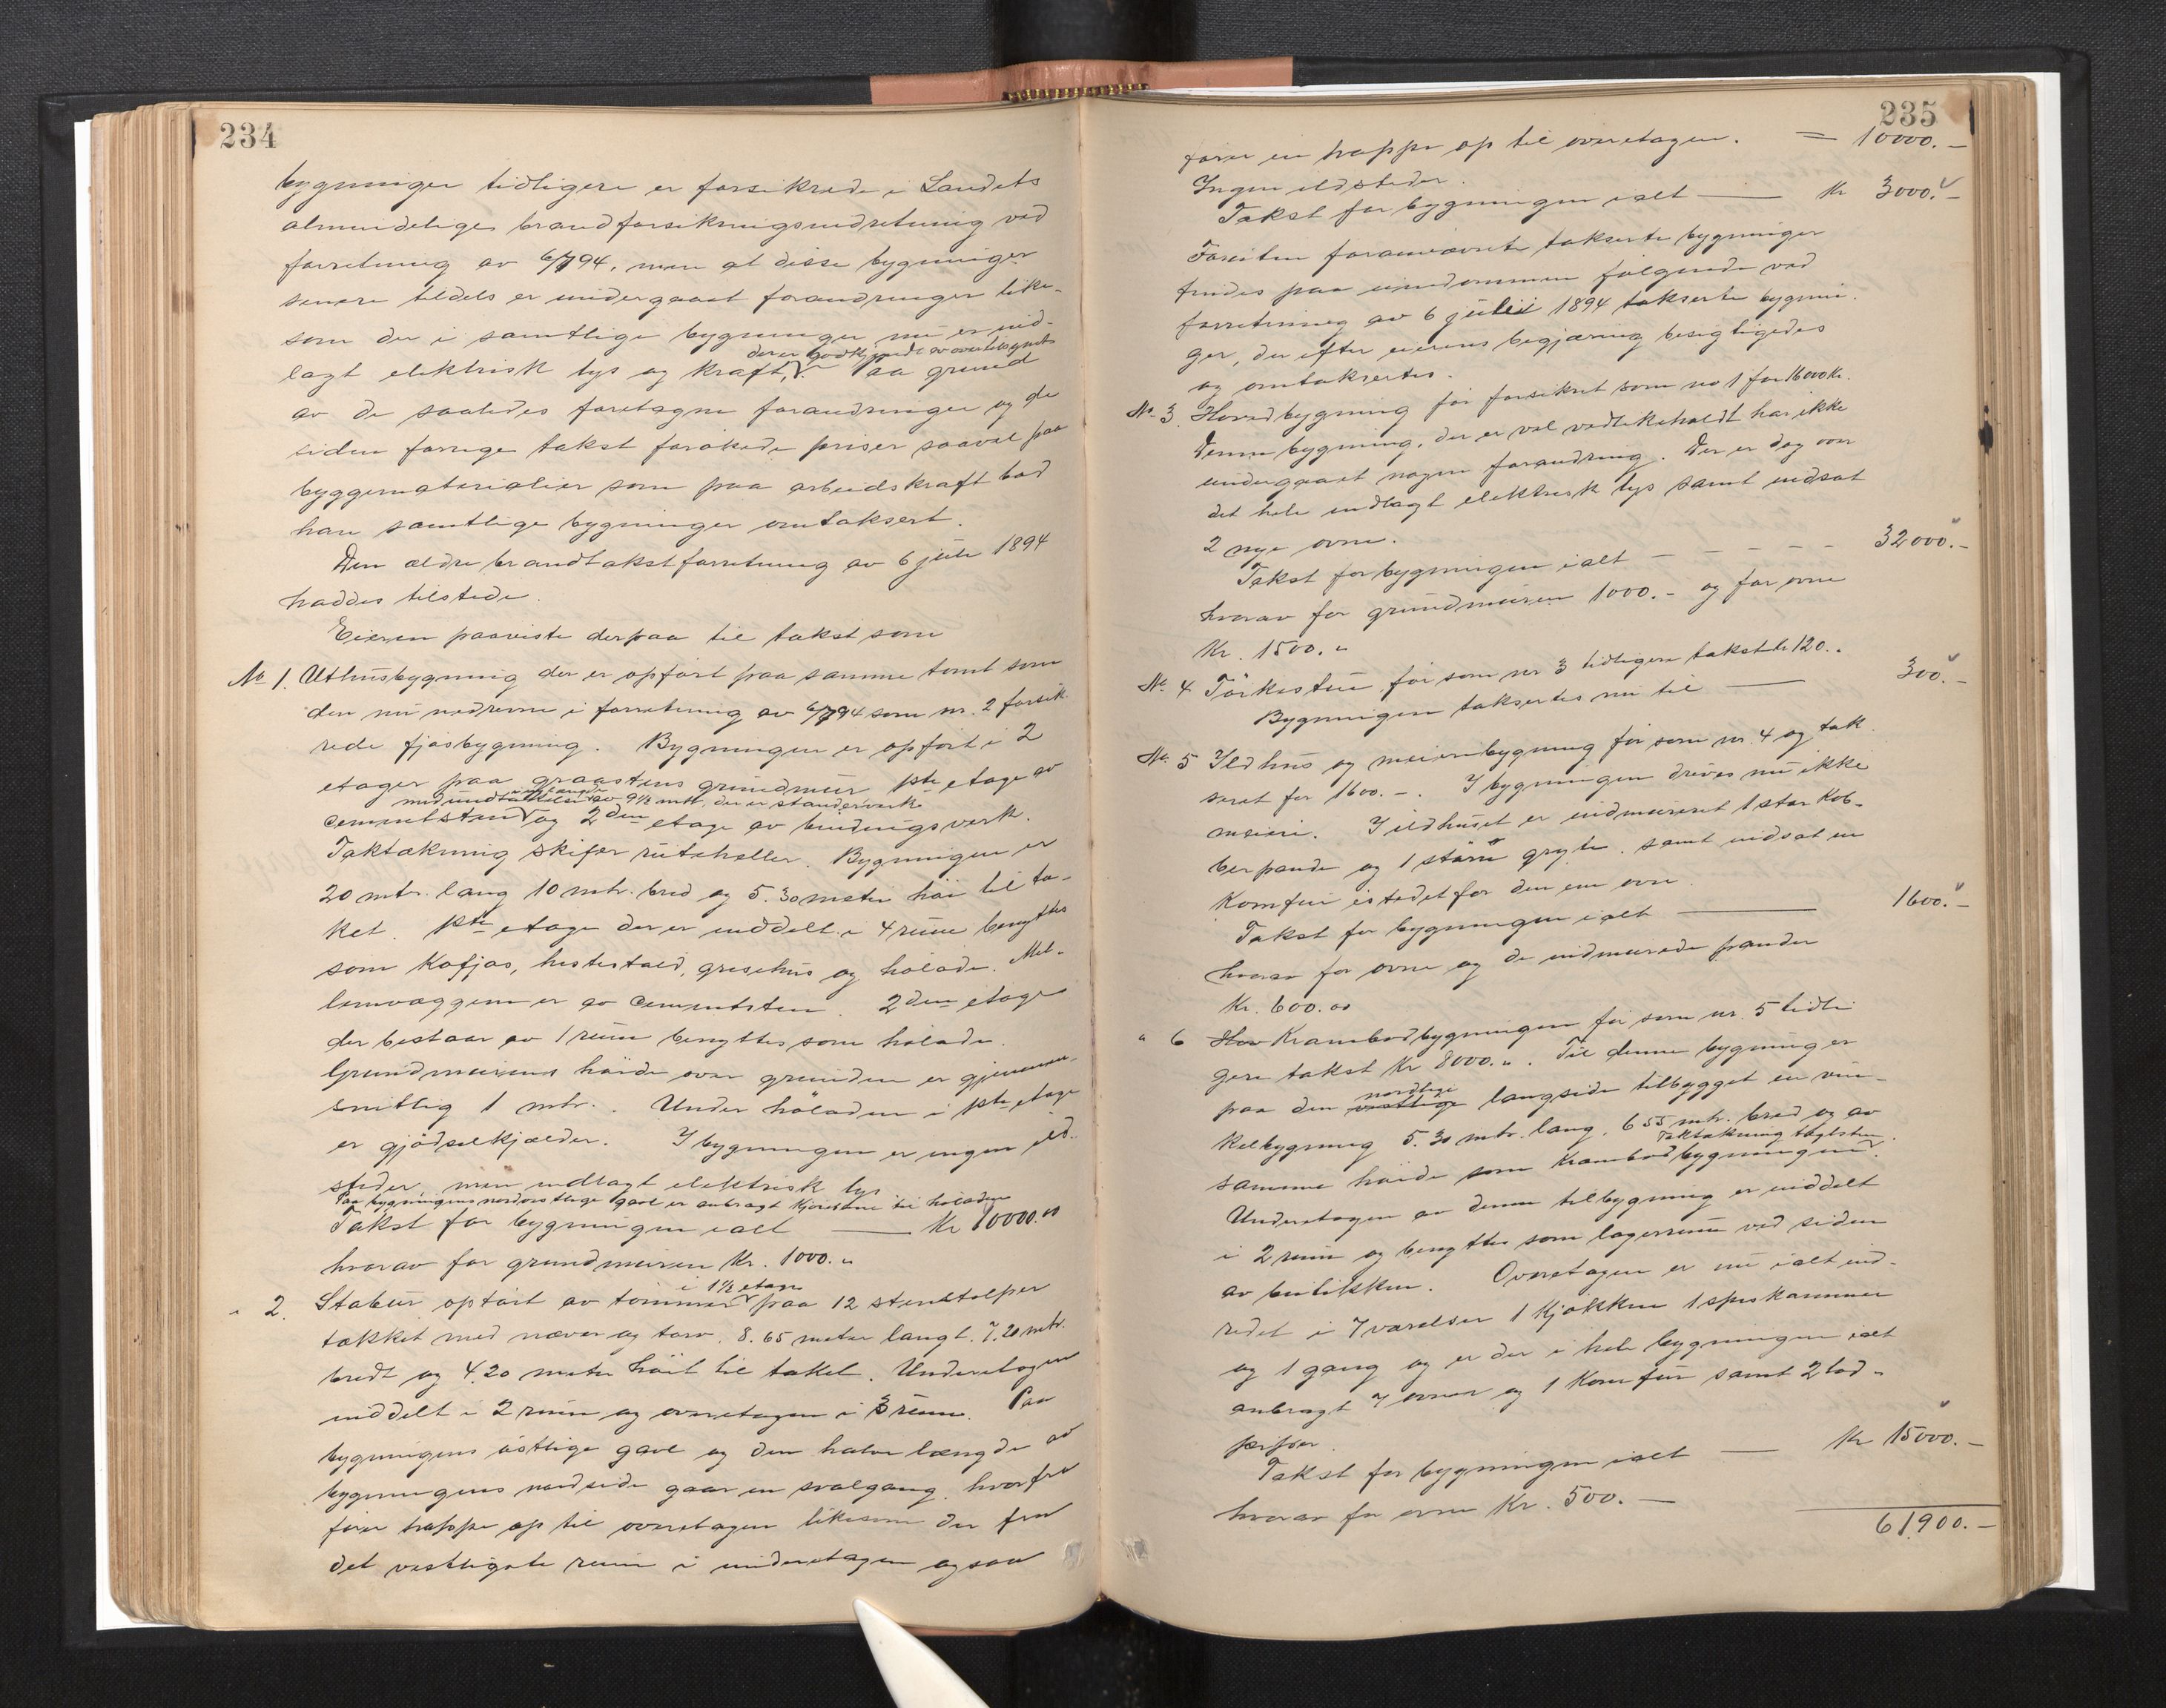 234
bygninger tidligere er forsikrede i Landets
almindelige brandforsikringsindretning ved
forretning av 6/7 94, men at disse bygninger
senere tildels er undergaaet forandringer like-
som der i samtlige bygninger nu er ind-
der er godkjendt av overtilsynets
lagt elektrisk lys og kraft, Paa grund
av de saaledes foretagne forandringer og de
siden forrige takst forøkede priser saavel paa
byggematerialier som paa arbeidskraft bad
han samtlige bygninger omtaksert.
Den ældre brandtakstforretning av 6 juli 1894
haddes tilstede.
Eieren paaviste derpaa til takst som
No 1. Uthusbygning der er opført paa samme tomt som
den nu nedrevne i forretning av 6/7 94 som nr. 2 forsik
rede fjøsbygning. Bygningen er opført i 2
etager paa graastens grundmur 1ste etage av
med undtakelse av 9½ mtr. der er standerverk
cementsten og 2den etage av bindingsverk.
Taktækning skifer ruteheller. Bygningen er
20 mtr. lang 10 mtr. bred og 5.30 meter høi til ta-
ket. 1ste etage der er inddelt i 4 rum benyttes
som Kofjøs, hestestald, grisehus og hølade. Mel-
lemvæggene er av Cementsten. 2den etage
der bestaar av 1 rum benyttes som hølade.
Grundmurens høide over grunden er gjennem-
snitlig 1 mtr. Under høladen i 1ste etage
er gjødselkjælder. I bygningen er ingen ild-
steder, men indlagt elektrisk lys
Paa bygningens nordøstlige gavl er anbragt kjørebro til høladen
Takst for bygningen ialt — Kr 10000.00
hvorav for grundmuren Kr. 1000.„
i 1½ etage
„ 2. Stabur opført av tømmer paa 12 stenstolper
tækket med næver og torv, 8.65 meter langt. 7.20 mtr.
bredt og 4.20 meter høit til taket. Underetagen
inddelt i 2 rum og overetagen i 3 rum. Paa
bygningens østlige gavl og den halve længde av
bygningens nordside gaar en svalgang, hvorfra
fører trappe op til overetagen likesom der fra
det vestligste rum i underetagen ogsaa
235
fører en trappe op til overetagen. = 10000.—
Ingen ildsteder.
Takst for bygningen ialt — Kr 3000.—
Foruten forannævnte takserte bygninger
findes paa eiendommen følgende ved
forretning av 6 juli 1894 takserte bygnin-
ger, der efter eierens begjæring besigtigedes
og omtaksertes.
No 3. Hovedbygning før forsikret som no 1 for 16000 Kr.
Denne bygning, der er vel vedlikeholdt har ikke
undergaaet nogen forandring. Der er dog over
det hele indlagt elektrisk lys samt indsat
2 nye ovne.
Takst for bygningen ialt — — — — — 32000.—
hvorav for grundmuren 1000.— og for ovne
Kr. 1500.„
No 4 Tørkestue før som nr 3 tidligere takst kr 120.„
Bygningen taksertes nu til — 300.—
No. 5 Ildhus og meieribygning før som nr. 4 og tak
seret for 1600.—. I bygningen drives nu ikke
meieri. I ildhuset er indmuret 1 stor Kob-
berpande og 1 større gryte, samt indsat en
Komfur istedetfor den ene ovn.
Takst for bygningen ialt — 1600.—
hvorav for ovne og de indmurede pander
Kr. 600.00
„ 6 Hov Krambodbygningen før som nr. 5 tidli
gere takst Kr 8000.„. Til denne bygning er
nordlige
paa den vestlige langside tilbygget en vin-
kelbygning 5.30 mtr. lang, 6 55 mtr. bred og av
Taktækning taglsten.
samme høide som Krambodbygningen.
Underetagen av denne tilbygning er inddelt
i 2 rum og benyttes som lagerrum ved siden
av butikken. Overetagen er nu ialt ind-
redet i 7 værelser 1 Kjøkken 1 spiskammer
og 1 gang og er der i hele bygningen ialt
anbragt 7 ovner og 1 Komfur samt 2 lod-
piper.
Takst for bygningen ialt — Kr 15000.—
hvorav for ovne Kr. 500.—
61900.—